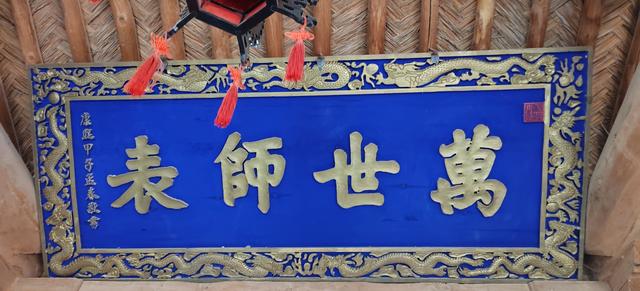 萬世師表
康熙甲子孟春敬書